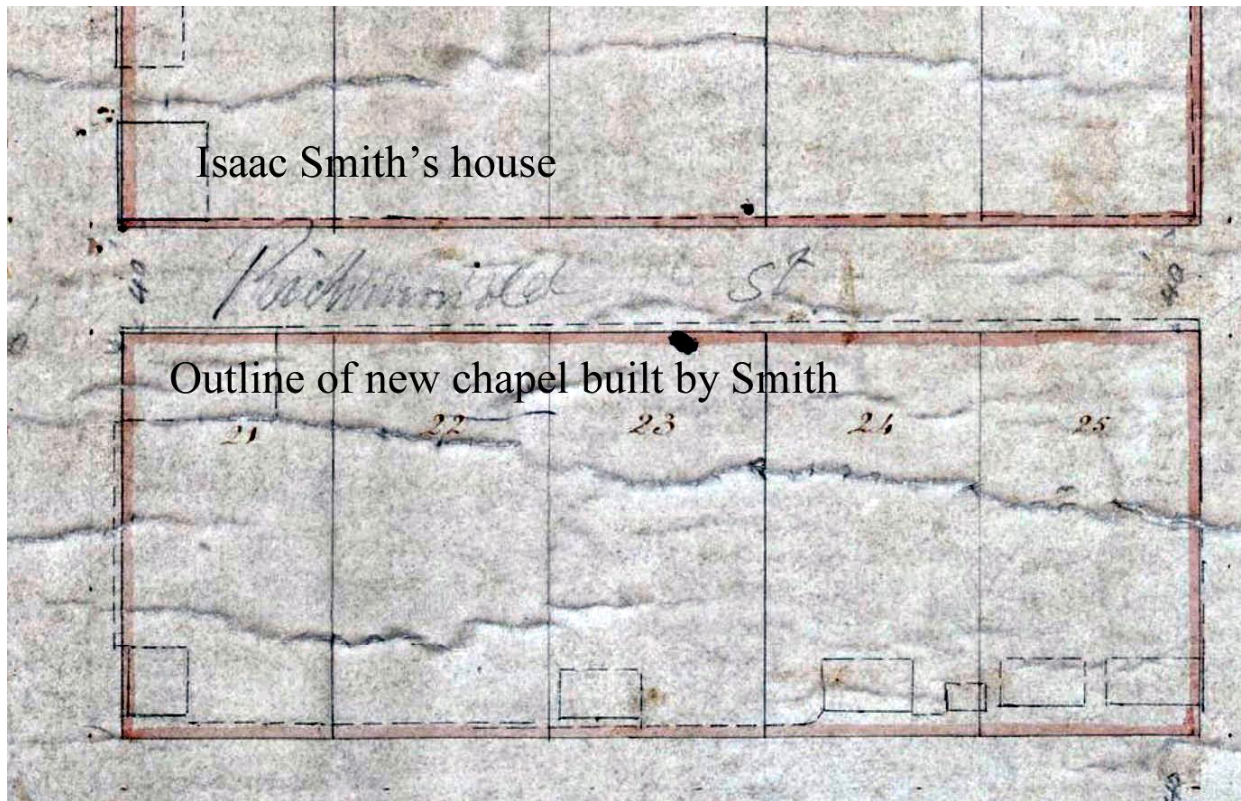 Isaac Smith’s house
40 Richmond St 40
Outline of new chapel built by Smith
21 22 23 24 25